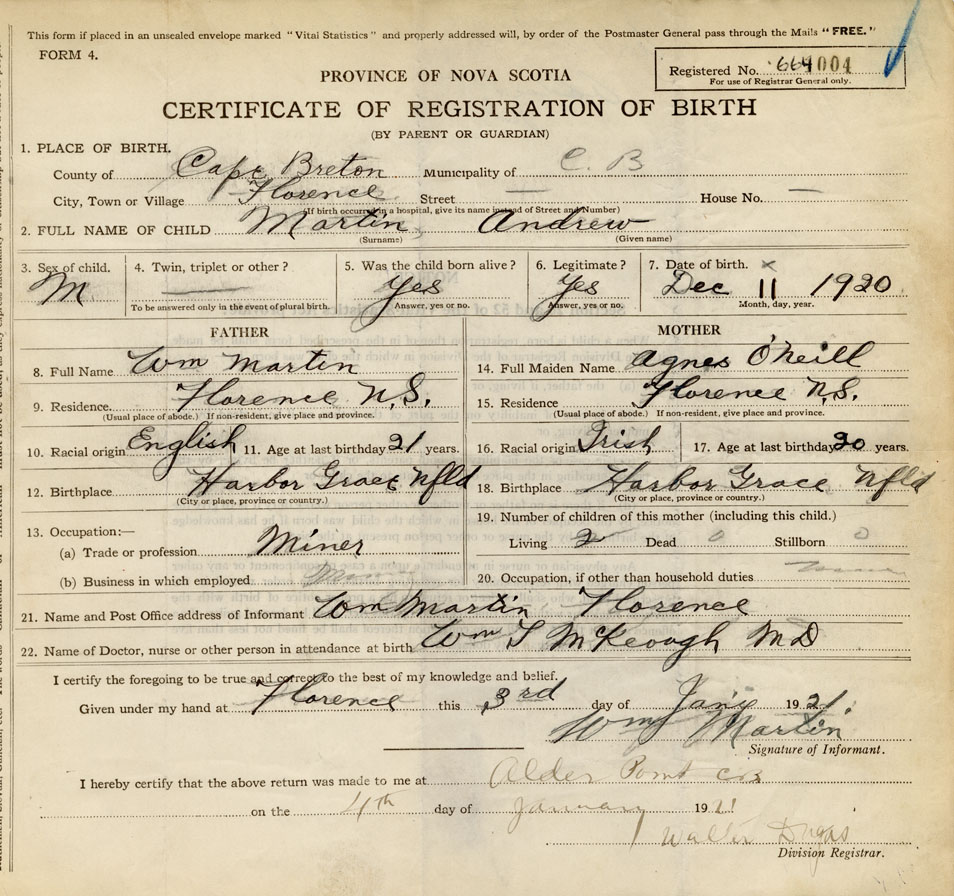 This form if placed in an unsealed envelope marked "Vital Statistics" and properly addressed will, by order of the Postmaster General pass through the Mails "FREE."
FORM 4.
Registered No. 664004
For use of Registrar General only.
PROVINCE OF NOVA SCOTIA
CERTIFICATE OF REGISTRATION OF BIRTH
(BY PARENT OR GUARDIAN)
1. PLACE OF BIRTH.
County of Cape Breton Municipality of C. B
City, Town or Village Florence Street — House No. —
(If birth occurred in a hospital, give its name instead of Street and Number)
2. FULL NAME OF CHILD Martin, Andrew
(Surname) (Given name)
3. Sex of child. 4. Twin, triplet or other? 5. Was the child born alive? 6. Legitimate? 7. Date of birth. x
M — Yes Yes Dec 11 1920
To be answered only in the event of plural birth. Answer, yes or no. Answer, yes or no. Month, day, year.
FATHER MOTHER
8. Full Name Wm Martin 14. Full Maiden Name Agnes O'Neill
9. Residence Florence N.S. 15. Residence Florence N.S.
(Usual place of abode.) If non-resident, give place and province. (Usual place of abode.) If non-resident, give place and province.
10. Racial origin English 11. Age at last birthday 21 years. 16. Racial origin Irish 17. Age at last birthday 20 years.
12. Birthplace Harbor Grace Nfld 18. Birthplace Harbor Grace Nfld
(City or place, province or country.) (City or place, province or country.)
19. Number of children of this mother (including this child.)
13. Occupation:—
(a) Trade or profession Miner Living 2 Dead 0 Stillborn 0
(b) Business in which employed 20. Occupation, if other than household duties
21. Name and Post Office address of Informant Wm Martin, Florence
22. Name of Doctor, nurse or other person in attendance at birth Wm S McKeough MD
I certify the foregoing to be true and correct to the best of my knowledge and belief.
Given under my hand at Florence this 3rd day of Jan'y 1921.
Wm Martin
Signature of Informant.
I hereby certify that the above return was made to me at Alder Point
on the 4th day of January 1921
Walter
Division Registrar.